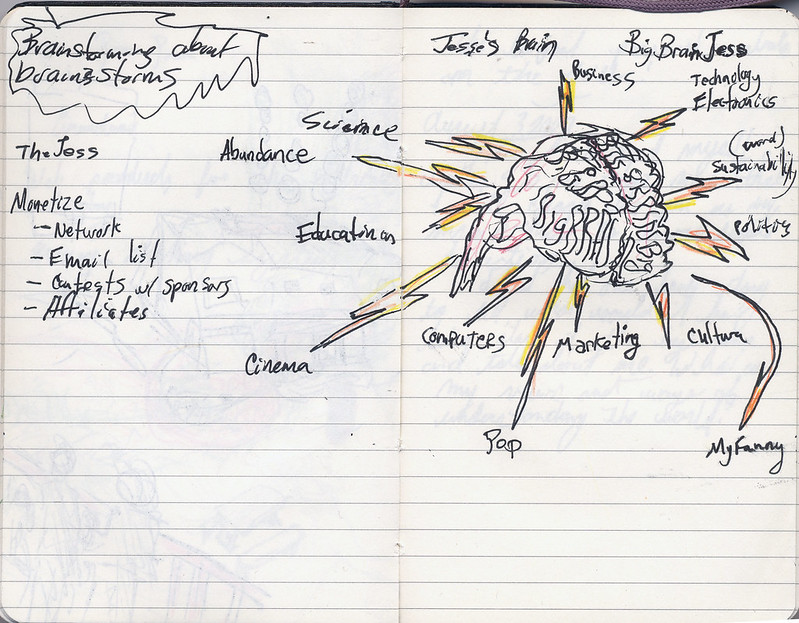 Brainstorming about
brainstorms
The Jess
Monetize
– Network
– Email list
– Contests w/ sponsors
– Affiliates
Science
Abundance
Education
Cinema
Jesse's Brain
Big Brain Jess
Business
Technology
Electronics
(award)
Sustainability
Politics
Cultura
My Fanny
Marketing
Pop
Computers